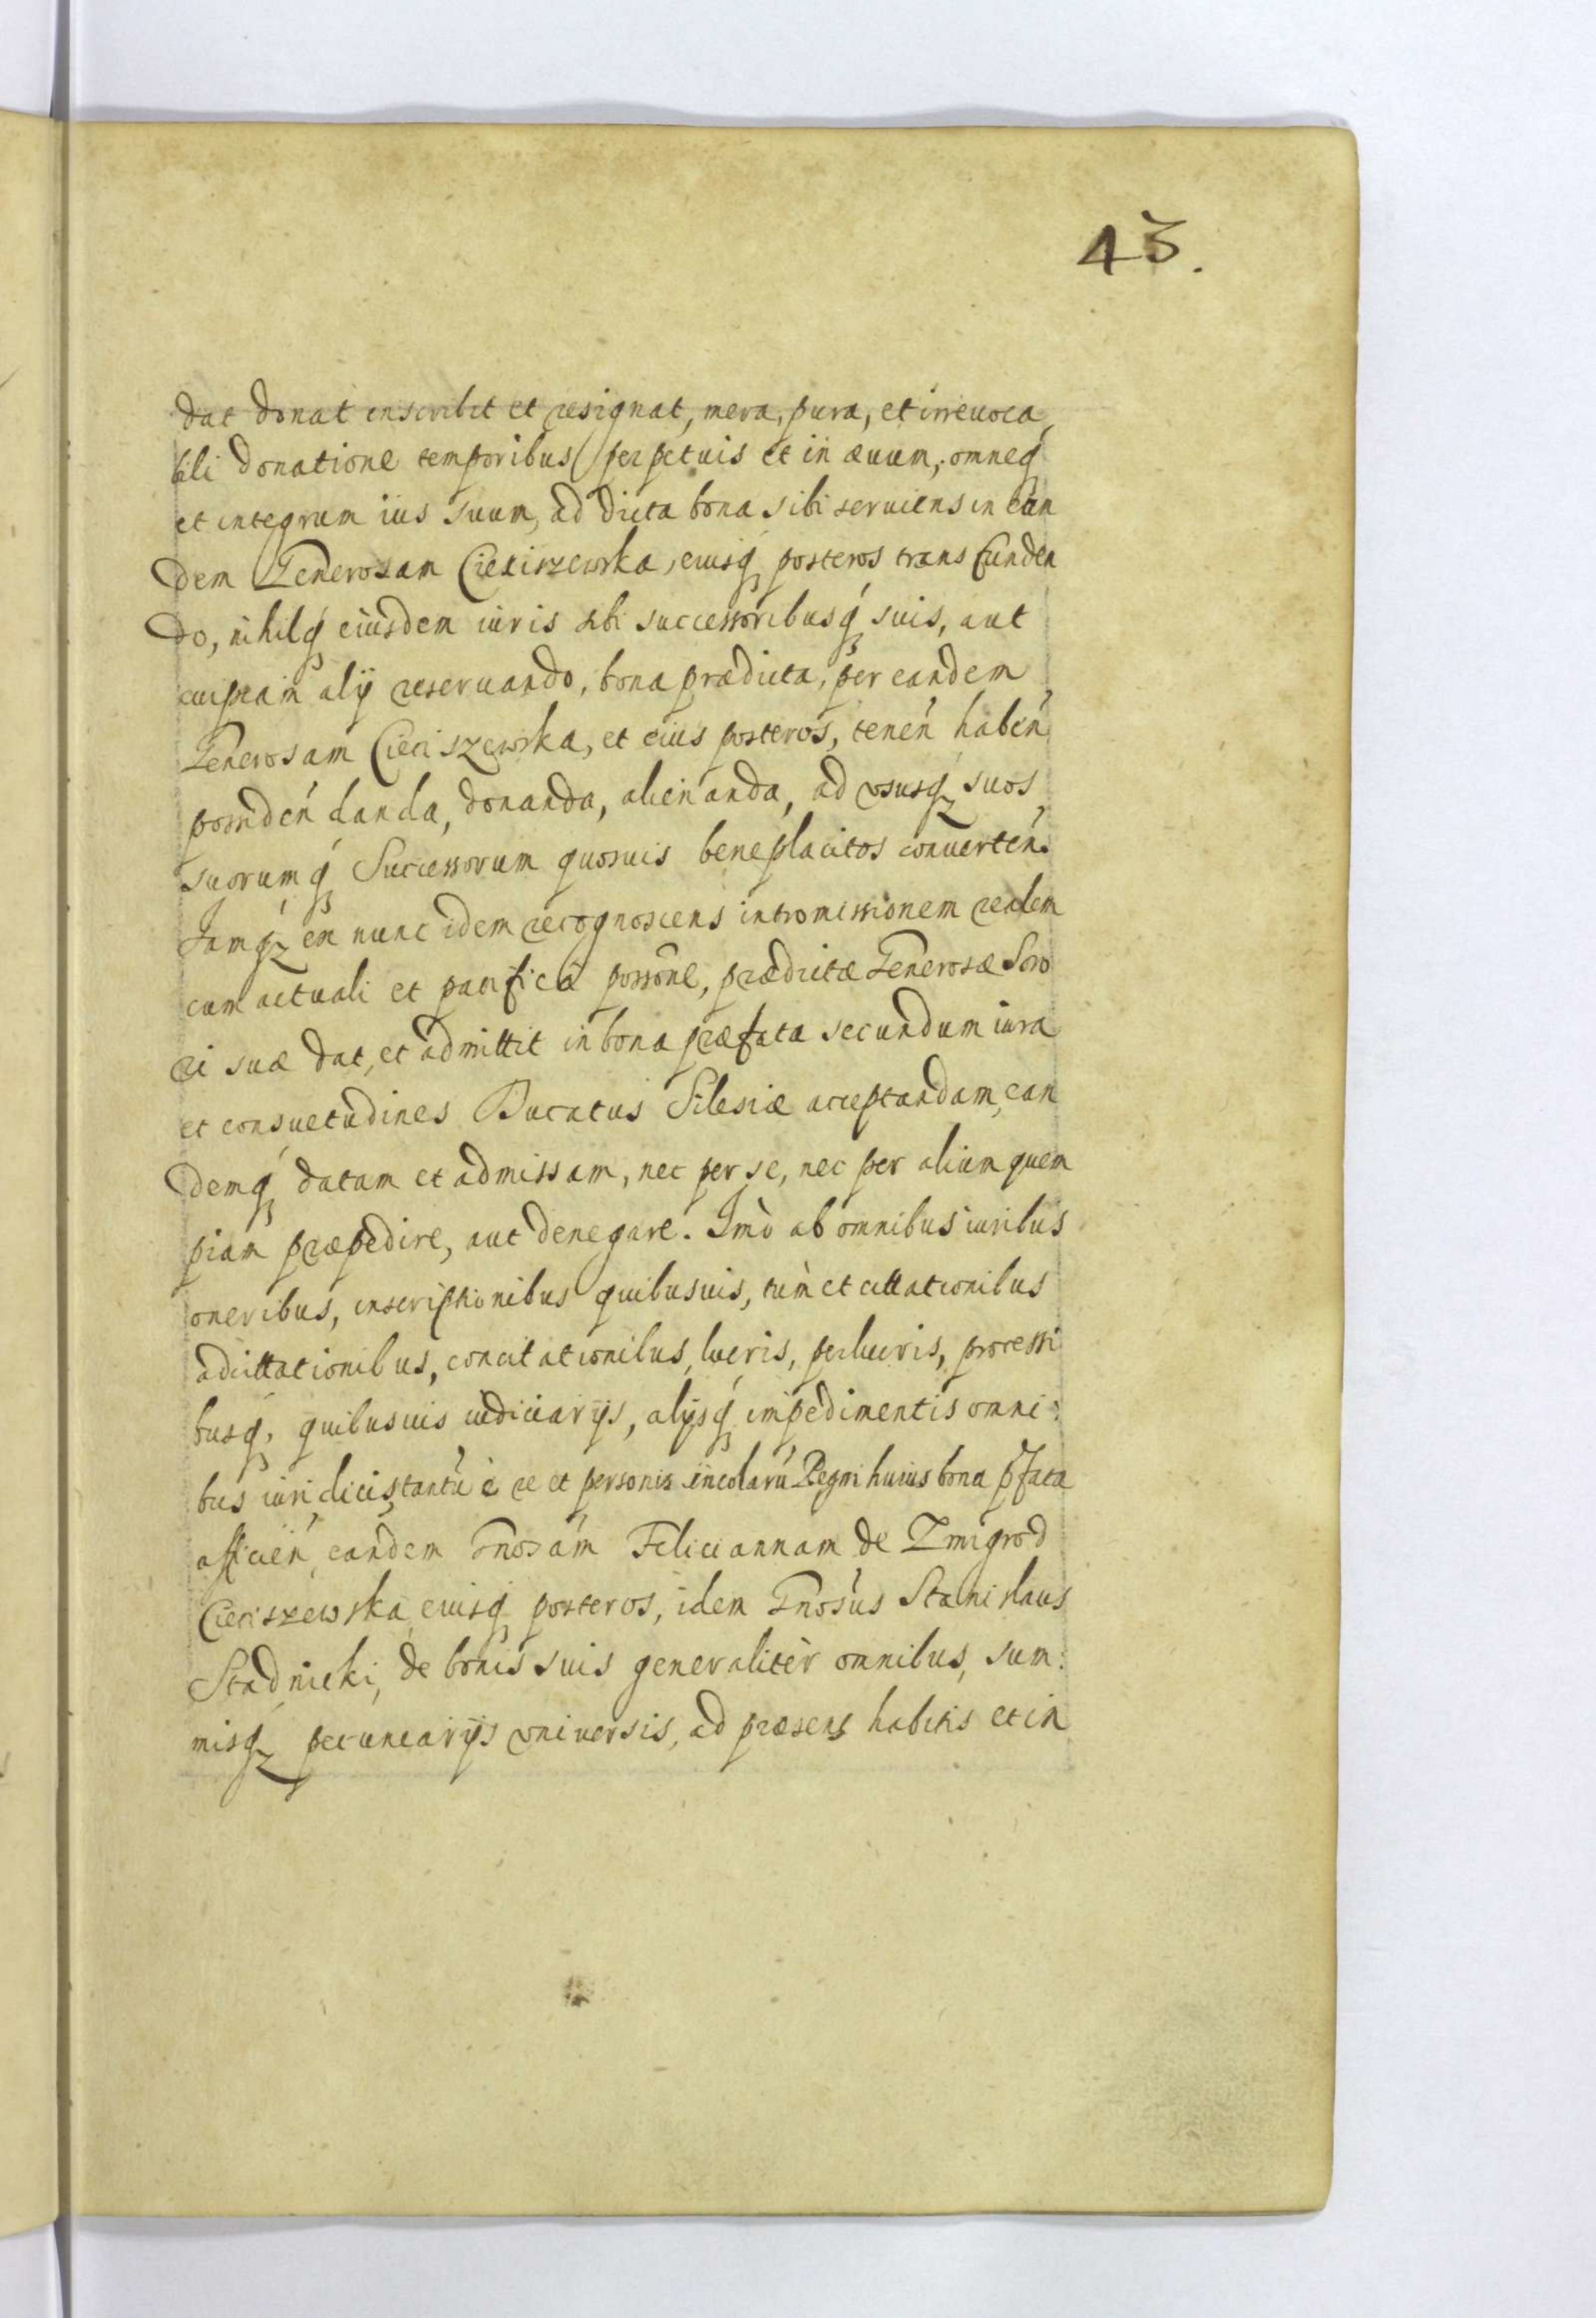 43.
dat donat inscribit et resignat, mera, pura, et irreuoca
bili donatione temporibus perpetuis et in æuum, omneq́
et integrum ius suum, ad dicta bona sibi seruiens in ean
dem Generosam Cieciszewska, eiusq́ posteros transfunden
do, nihilq́ eiusdem iuris sibi successoribusq́ suis, aut
cuipiam alij reseruando, bona prædicta, per eandem
Generosam Cieciszewska, et eius posteros, tenen̄ haben̄
possiden̄ danda, donanda, alienanda, ad vsusq́ suos
suorumq́ Successorum quosuis beneplacitos conuerten̄.
Jamq́ ex nunc idem recognoscens intromissionem realem
cum actuali et pacifica possōne, prædictæ Generosæ Soro
ri suæ dat, et admittit in bona præfata secundum iura
et consuetudines Ducatus Silesiæ acceptandam, ean
demq́ datam et admissam, nec per se, nec per alium quem
piam præpedire, aut denegare. Imò ab omnibus iuribus
oneribus, inscriptionibus quibusuis, tùm et cittationibus
adcittationibus, concitationibus, lucris, perlucris, processi
busq́, quibusuis iudiciarijs, alijsq́ impedimentis omni:
bus iuridicis, tantū è re et personis incolarū Regni huius bona pfata
afficien̄, eandem Gnosam Feliciannam de Zmigrod
Cieciszewska eiusq́ posteros, idem Gnosus Stanislaus
Stadnicki, de bonis suis generalitèr omnibus, sum:
misq́ pecuniarijs vniuersis, ad præsens habitis et in